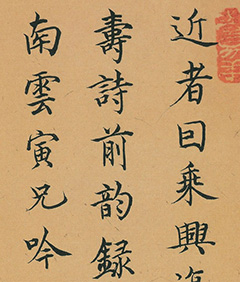 近者回乘興
壽詩前韵録
南雲寅兄吟